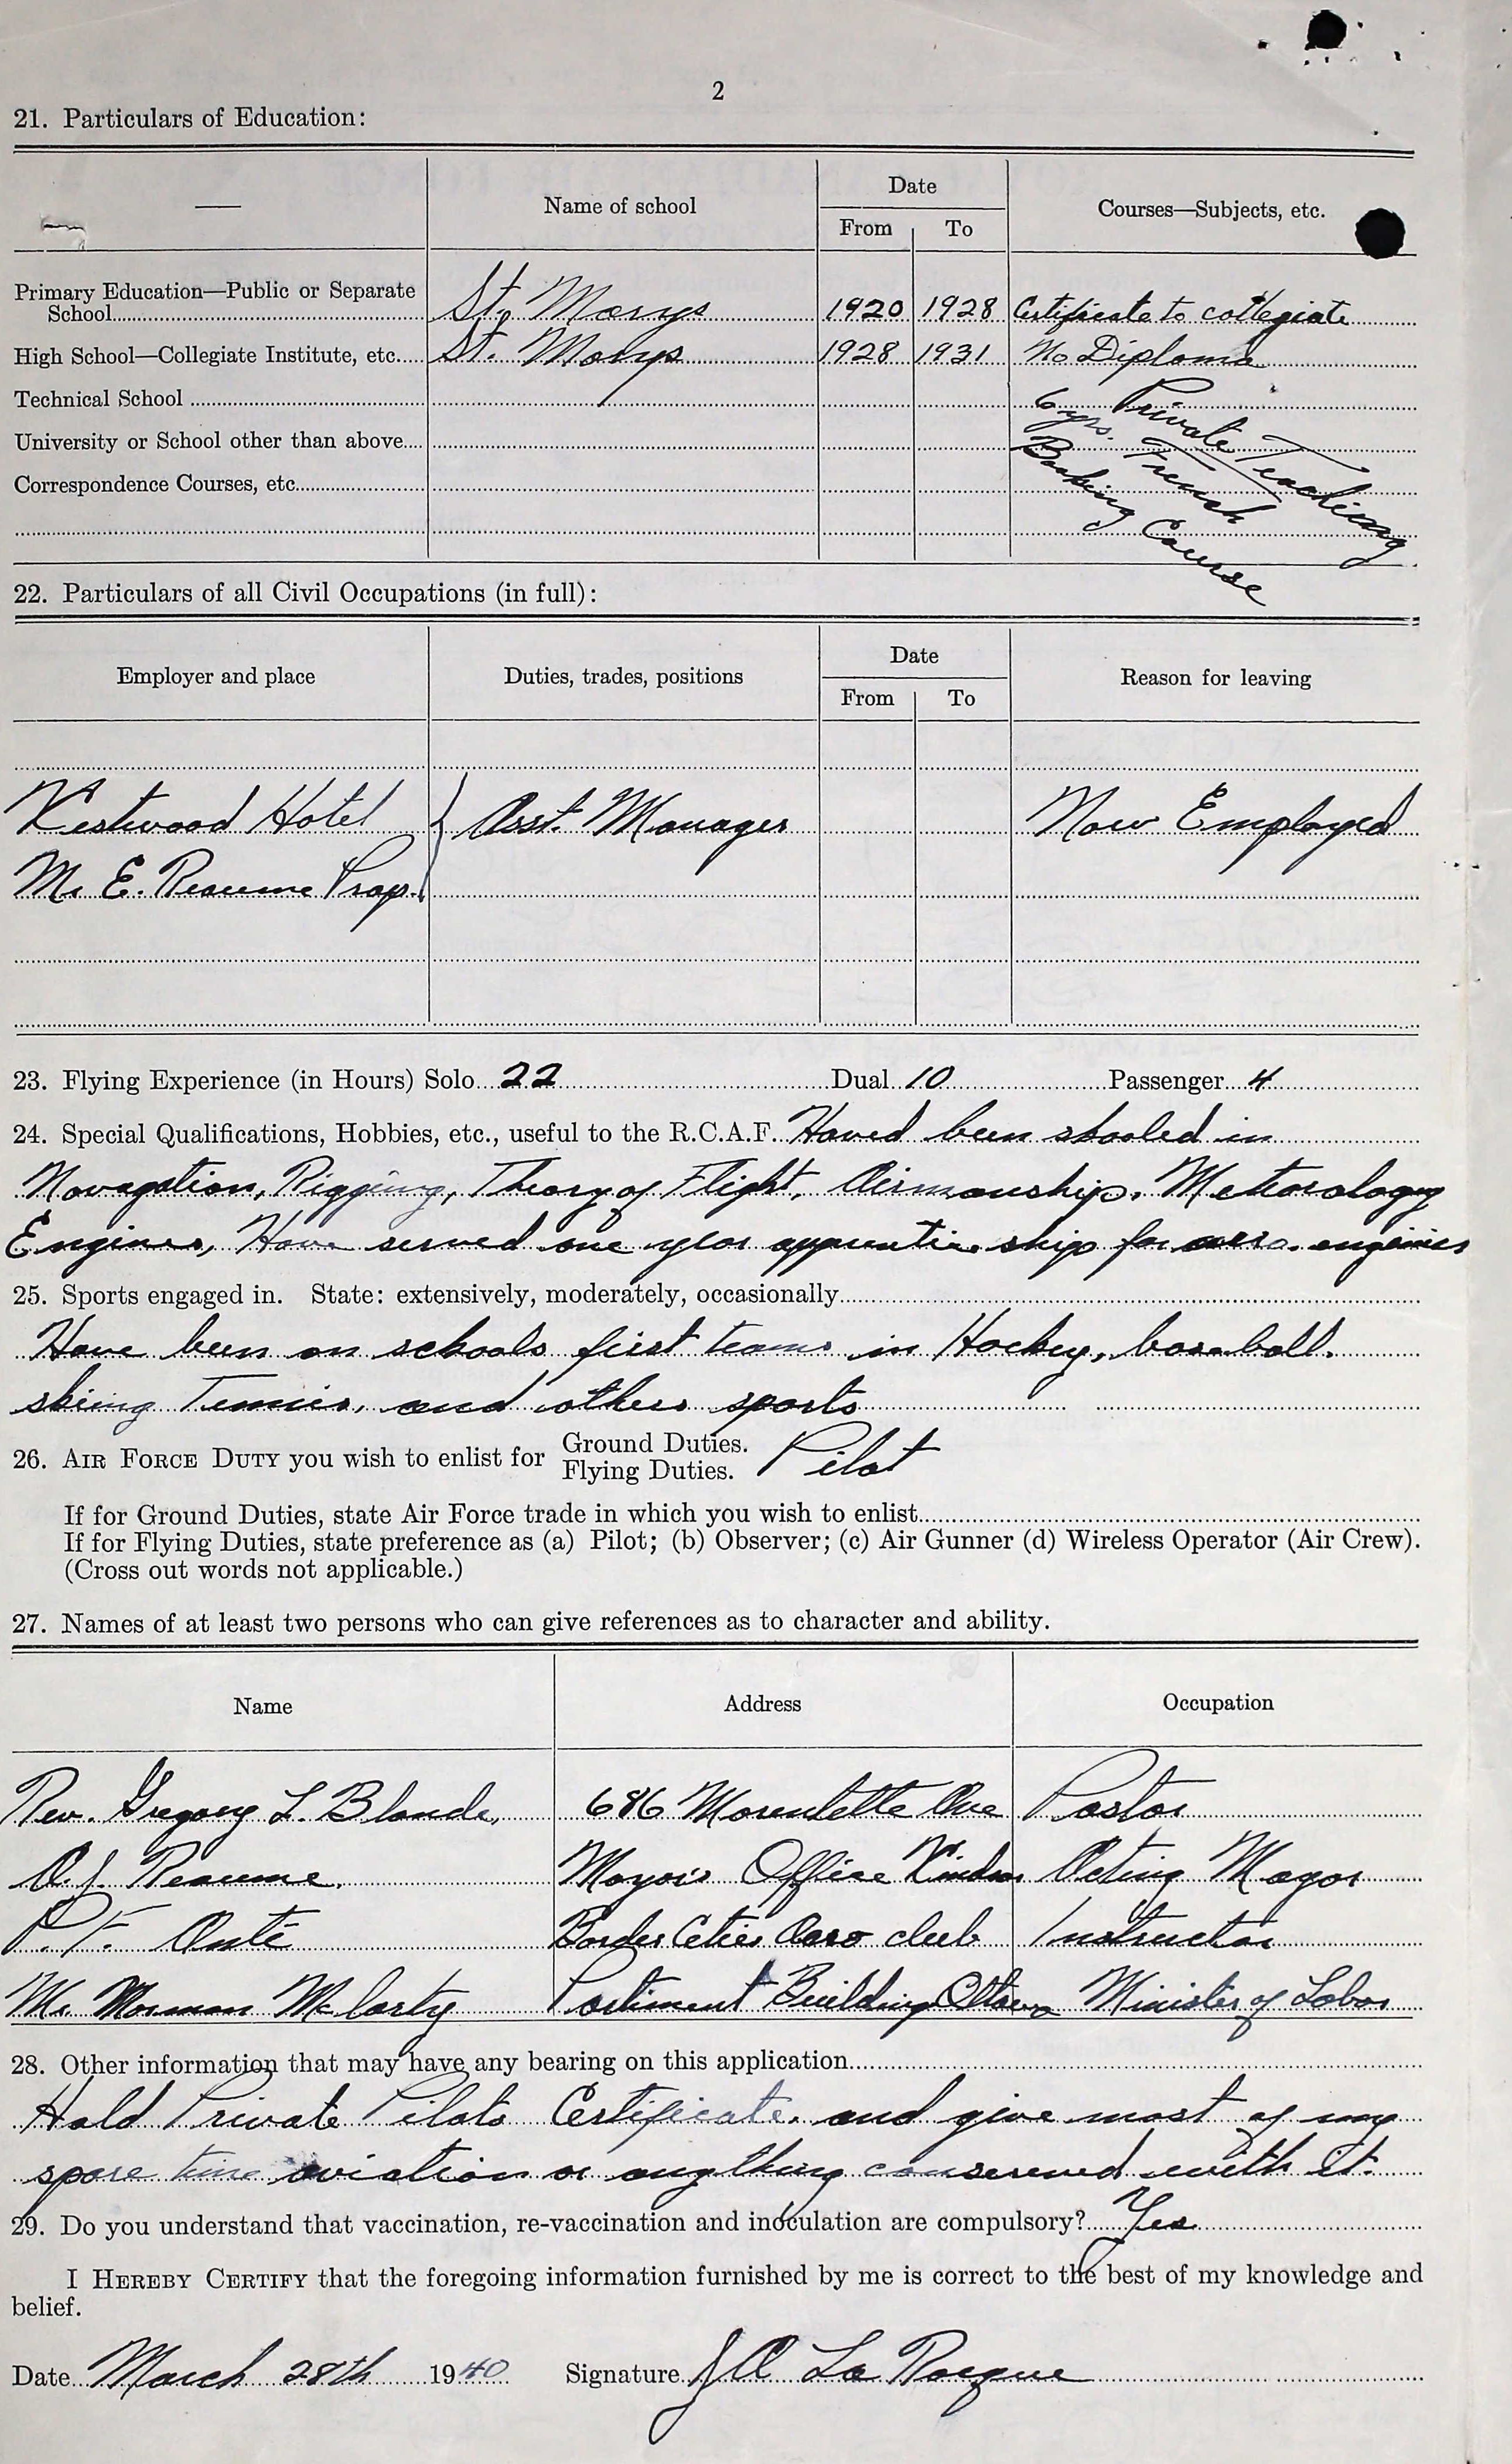 2
21. Particulars of Education:
— Name of school Date Courses—Subjects, etc.
From To
Primary Education—Public or Separate
School St. Marys 1920 1928 Certificate to collegiate
High School—Collegiate Institute, etc. St. Marys 1928 1931 No Diploma
Technical School
University or School other than above
Correspondence Courses, etc.
Private Teaching
6 yrs. French
Banking Course
22. Particulars of all Civil Occupations (in full):
Employer and place Duties, trades, positions Date Reason for leaving
From To
Westwood Hotel Asst. Manager Now Employed
Mr E. Reaume Prop.
23. Flying Experience (in Hours) Solo 22 Dual 10 Passenger 4
24. Special Qualifications, Hobbies, etc., useful to the R.C.A.F. Haved been shooled in
Navagation, Rigging, Theory of Flight, Airmanship, Meteorology
Engines, Have served one year apprentice ship for aero. engines
25. Sports engaged in. State: extensively, moderately, occasionally
Have been on schools first teams in Hockey, baseball.
skiing Tennis, and others sports
26. Air Force Duty you wish to enlist for Ground Duties. Flying Duties. Pilot
If for Ground Duties, state Air Force trade in which you wish to enlist
If for Flying Duties, state preference as (a) Pilot; (b) Observer; (c) Air Gunner (d) Wireless Operator (Air Crew).
(Cross out words not applicable.)
27. Names of at least two persons who can give references as to character and ability.
Name Address Occupation
Rev. Gregory L. Blonde, 686 Marentette Ave Pastor
A.J. Reaume. Mayois Office Windsor Acting Mayor
P. F. Border Cities Aero club Instructor
Mr Norman McLarty Parliment Building Ottawa Minister of Labor
28. Other information that may have any bearing on this application
Hold Private Pilots Certificate. and give most of my
spare time aviation or anything conserened with it.
29. Do you understand that vaccination, re-vaccination and inoculation are compulsory? Yes
I Hereby Certify that the foregoing information furnished by me is correct to the best of my knowledge and
belief.
Date March 28th 1940 Signature J A La Rocque